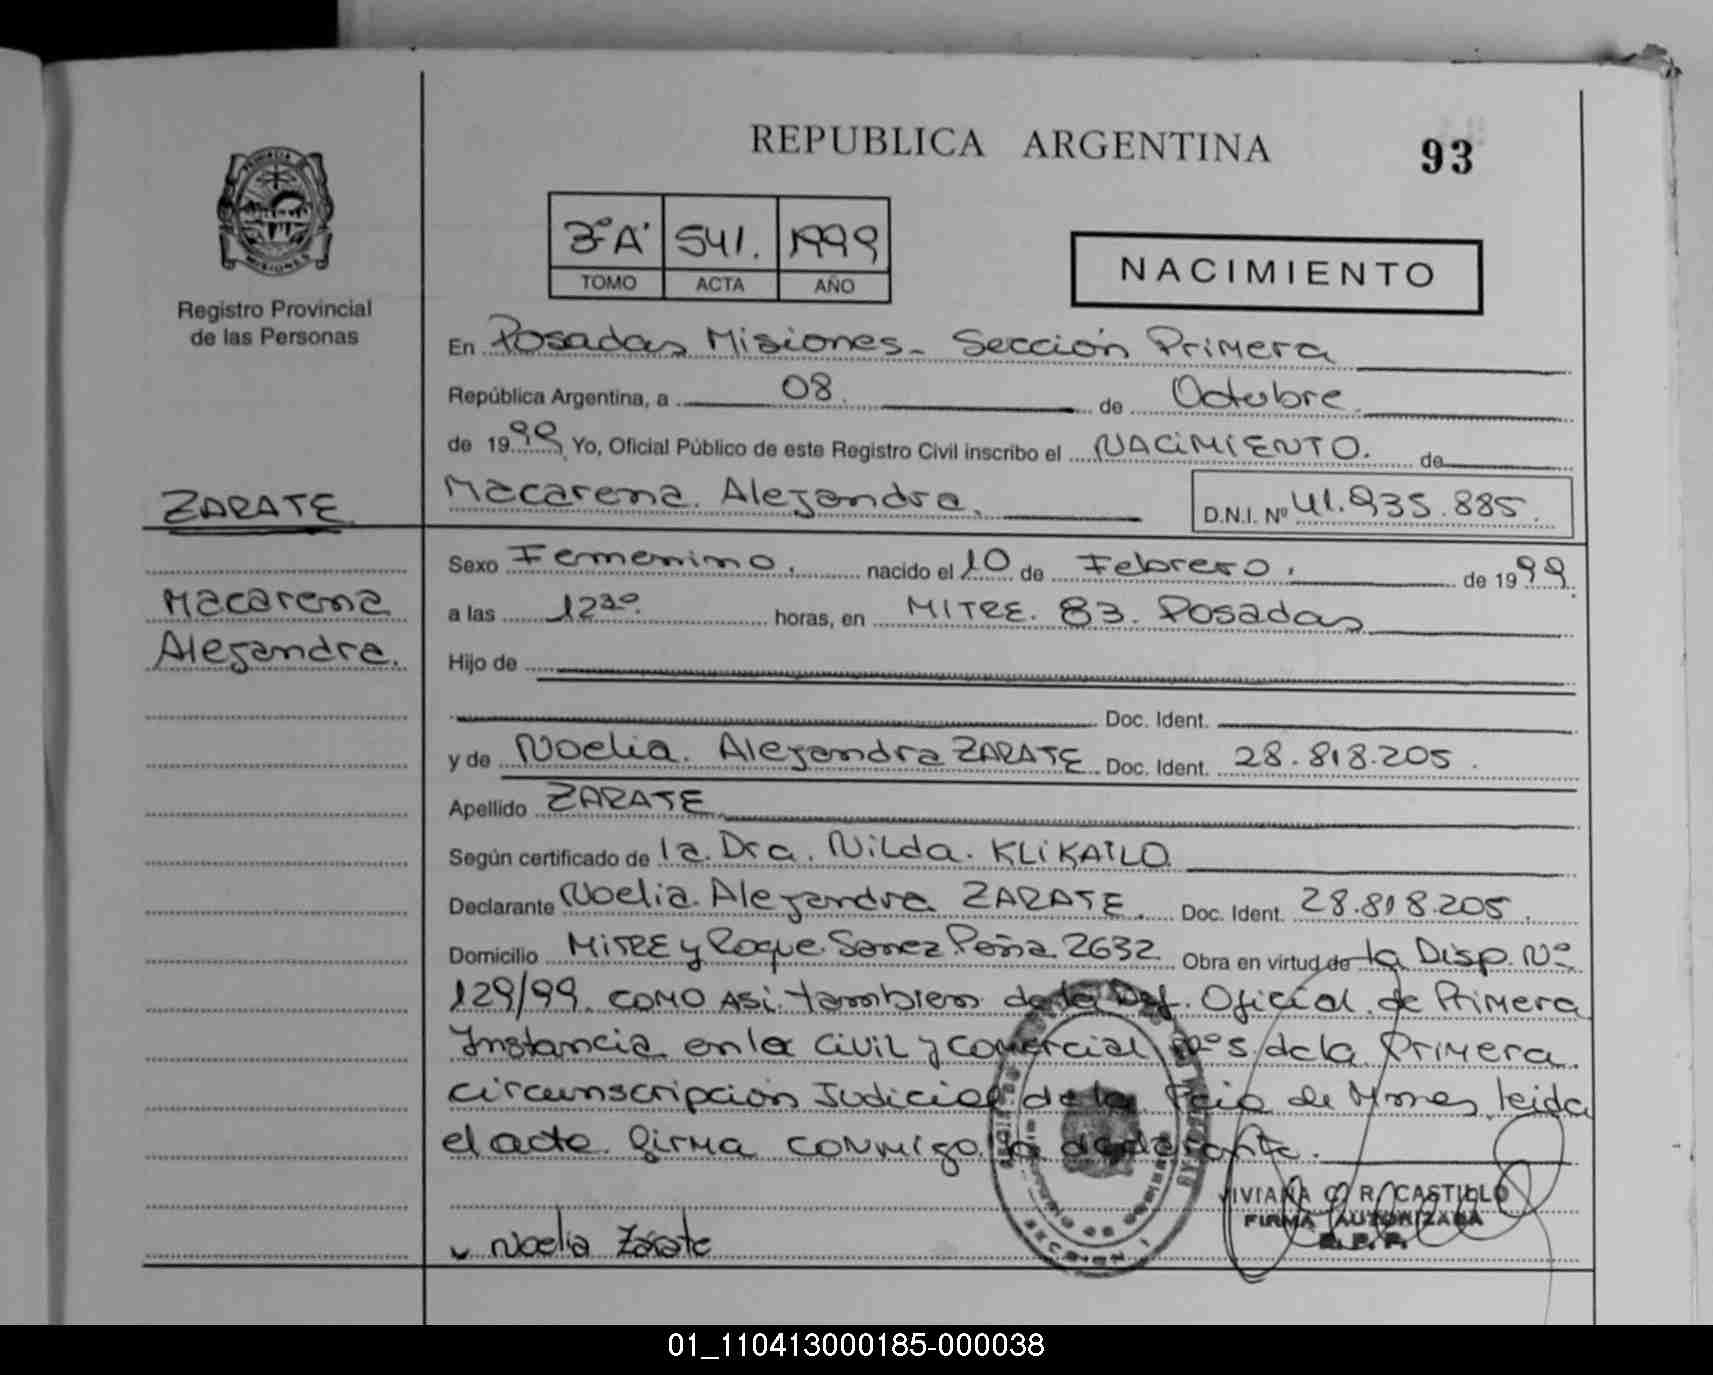 REPUBLICA ARGENTINA
93
PROVINCIA
MISIONES
Registro Provincial
de las Personas
3º "A" 541. 1999
TOMO ACTA AÑO
NACIMIENTO
En Posadas Misiones. Sección Primera
República Argentina, a 08. de Octubre.
de 1999 Yo, Oficial Público de este Registro Civil inscribo el NACIMIENTO. de
Macarena. Alejandra. D.N.I. Nº 41.935.885.
ZARATE
Macarena
Alejandra.
Sexo Femenino. nacido el 10 de Febrero. de 1999.
a las 12³⁰. horas, en MITRE. 83. Posadas
Hijo de
Doc. Ident.
y de Noelia. Alejandra ZARATE Doc. Ident. 28.818.205.
Apellido ZARATE
Según certificado de la. Dra. Nilda. KLIKAILO.
Declarante Noelia. Alejandra ZARATE. Doc. Ident. 28.818.205.
Domicilio MITRE y Roque. Sanez Peña 2632 Obra en virtud de la Disp. Nº
129/99. COMO ASi. tambien de la Def. Oficial. de Primera
Instancia en lo CiviL y comercial Nº 5. de la Primera
circunscripción Judicial de la Pcia de Mnes, leida
el acta. firma conmigo la declarante.
VIVIANA C. R. CASTILLO
FIRMA AUTORIZADA
R. P. P.
SECCION 1
Noelia Zárate
01_110413000185-000038